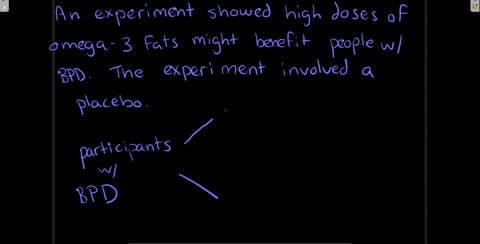 An experiment showed high doses of
omega-3 Fats might benefit people w/
BPD. The experiment involved a
placebo.
participants
w/
BPD